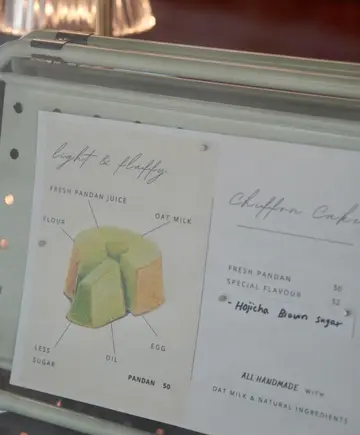 light & fluffy
FRESH PANDAN JUICE
FLOUR
OAT MILK
LESS
SUGAR
OIL
EGG
PANDAN 50
Chiffon Cake
FRESH PANDAN 50
SPECIAL FLAVOUR 52
- Hojicha Brown sugar
ALL HANDMADE WITH
OAT MILK & NATURAL INGREDIENTS